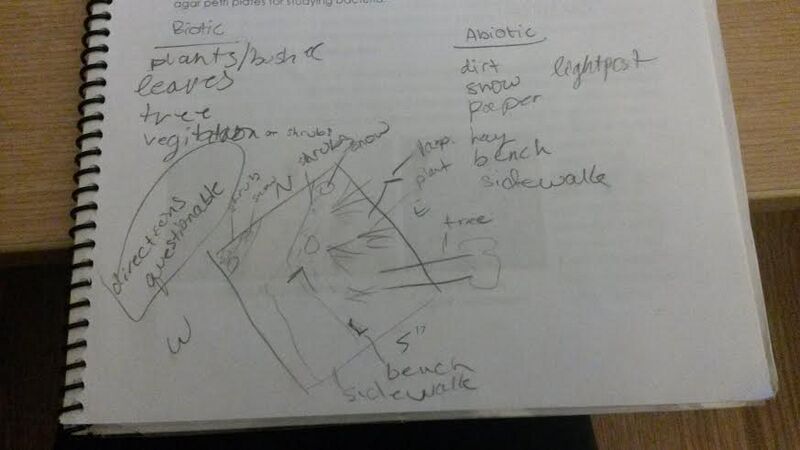 agar petri plates for studying bacteria.
Biotic
plants/bushe
leaves
tree
vegitation or shrubs
Abiotic
dirt
snow
paper
hay
bench
sidewalk
lightpost
directions questionable
shrub
snow
N
shrubs
snow
plant
E
tree
W
S
bench
sidewalk